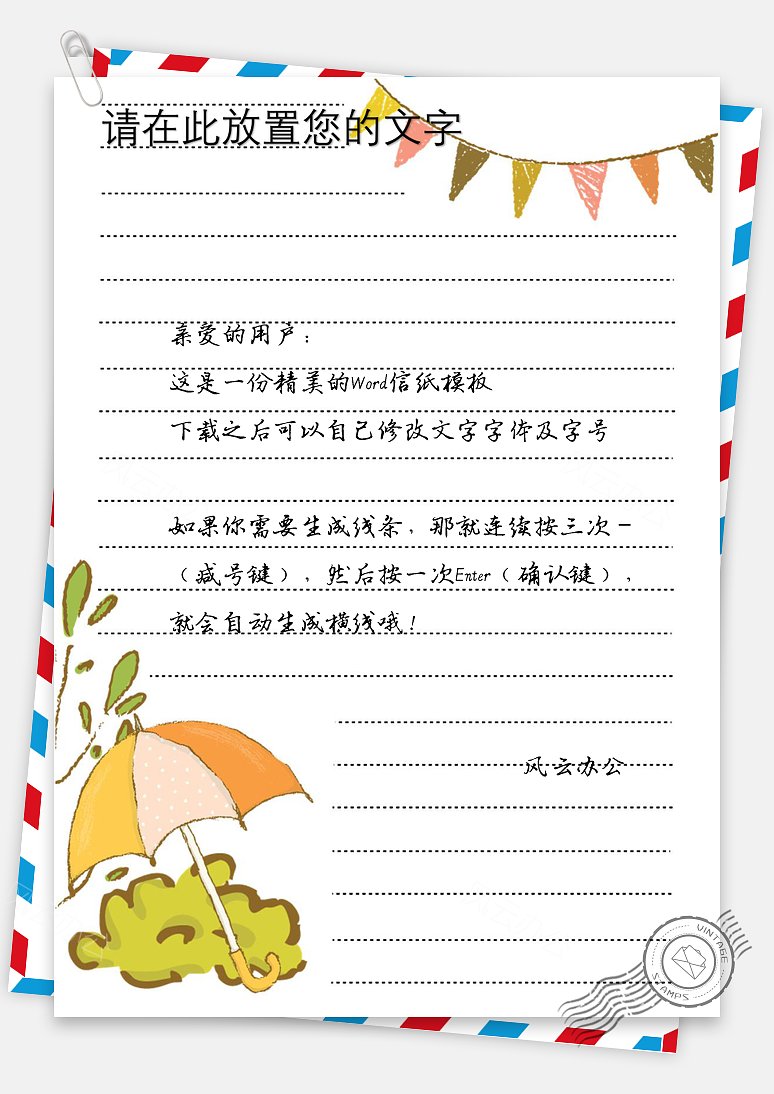 请在此放置您的文字
亲爱的用户：
这是一份精美的Word信纸模板
下载之后可以自己修改文字字体及字号
如果你需要生成线条，那就连续按三次－
（减号键），然后按一次Enter（确认键），
就会自动生成横线哦！
风云办公
VINTAGE
STAMPS